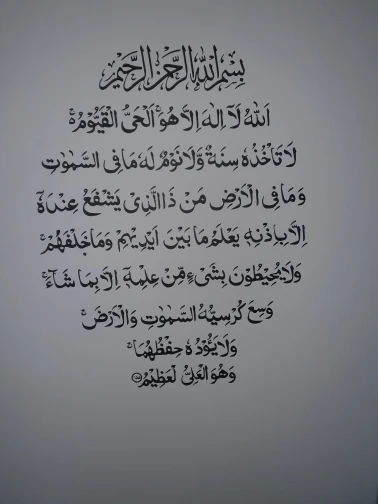 بِسْمِ اللهِ الرَّحْمٰنِ الرَّحِيْمِ
اَللهُ لَآ اِلٰهَ اِلَّا هُوَ ۚ اَلْحَىُّ الْقَيُّوْمُ ۚ
لَا تَاْخُذُهٗ سِنَةٌ وَّلَا نَوْمٌ لَهٗ مَا فِى السَّمٰوٰتِ
وَمَا فِى الْاَرْضِ مَنْ ذَا الَّذِىْ يَشْفَعُ عِنْدَهٗٓ
اِلَّا بِاِذْنِهٖ يَعْلَمُ مَا بَيْنَ اَيْدِيْهِمْ وَمَا خَلْفَهُمْ ۚ
وَلَا يُحِيْطُوْنَ بِشَىْءٍ مِّنْ عِلْمِهٖٓ اِلَّا بِمَا شَآءَ ۚ
وَسِعَ كُرْسِيُّهُ السَّمٰوٰتِ وَالْاَرْضَ ۚ
وَلَا يَـُٔوْدُهٗ حِفْظُهُمَا ۚ
وَهُوَ الْعَلِىُّ لْعَظِيْمُ